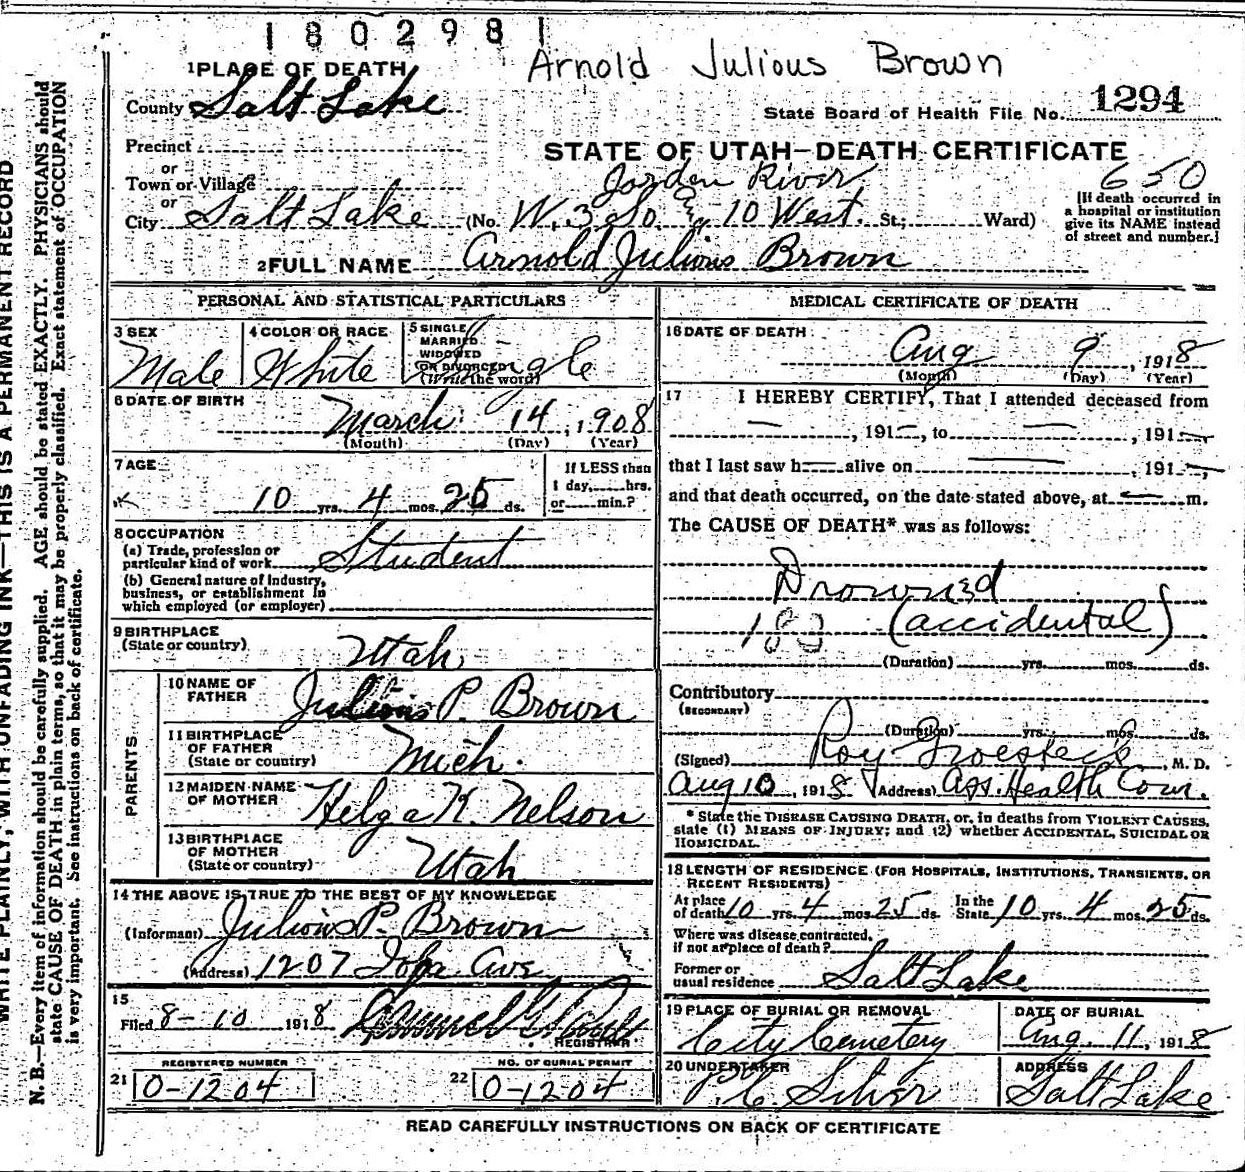 1802981
Arnold Julious Brown
1 PLACE OF DEATH
County Salt Lake
State Board of Health File No. 1294
Precinct
STATE OF UTAH—DEATH CERTIFICATE
or
Town or Village
Jorden River
650
or
City Salt Lake (No. W. 3 So. 10 West. St.; Ward)
[If death occurred in
a hospital or institution
give its NAME instead
of street and number.]
2 FULL NAME Arnold Julious Brown
PERSONAL AND STATISTICAL PARTICULARS
3 SEX
Male
4 COLOR OR RACE
White
5 SINGLE
MARRIED
WIDOWED
OR DIVORCED
(Write the word)
Single
6 DATE OF BIRTH
March 14, 1908
(Month) (Day) (Year)
7 AGE
10 yrs. 4 mos. 25 ds.
If LESS than
1 day, hrs.
or min.?
8 OCCUPATION
(a) Trade, profession or
particular kind of work Student
(b) General nature of Industry,
business, or establishment in
which employed (or employer)
9 BIRTHPLACE
(State or country) Utah
PARENTS
10 NAME OF
FATHER Julious P. Brown
11 BIRTHPLACE
OF FATHER
(State or country) Mich.
12 MAIDEN NAME
OF MOTHER Helga K. Nelson
13 BIRTHPLACE
OF MOTHER
(State or country) Utah
14 THE ABOVE IS TRUE TO THE BEST OF MY KNOWLEDGE
(Informant) Julious P. Brown
(Address) 1207 Ave
15
Filed 8-10 1918
REGISTRAR
REGISTERED NUMBER
21 O-1204
NO. OF BURIAL PERMIT
22 O-1204
MEDICAL CERTIFICATE OF DEATH
16 DATE OF DEATH
Aug 9, 1918
(Month) (Day) (Year)
17 I HEREBY CERTIFY, That I attended deceased from
—, 191—, to —, 191—
that I last saw h— alive on —, 191—,
and that death occurred, on the date stated above, at — m.
The CAUSE OF DEATH* was as follows:
Drowned
183 (accidental)
(Duration) yrs. mos. ds.
Contributory
(SECONDARY)
(Duration) yrs. mos. ds.
(Signed) Roy Groesbeck, M. D.
Aug 10, 1918 (Address) Ass. Health Com.
* State the DISEASE CAUSING DEATH, or, in deaths from VIOLENT CAUSES,
state (1) MEANS OF INJURY; and (2) whether ACCIDENTAL, SUICIDAL OR
HOMICIDAL.
18 LENGTH OF RESIDENCE (FOR HOSPITALS, INSTITUTIONS, TRANSIENTS, OR
RECENT RESIDENTS)
At place
of death 10 yrs. 4 mos. 25 ds.
In the
State 10 yrs. 4 mos. 25 ds.
Where was disease contracted,
if not at place of death?
Former or
usual residence Salt Lake
19 PLACE OF BURIAL OR REMOVAL
City Cemetery
DATE OF BURIAL
Aug. 11, 1918
20 UNDERTAKER
Silver
ADDRESS
Salt Lake
READ CAREFULLY INSTRUCTIONS ON BACK OF CERTIFICATE
WRITE PLAINLY, WITH UNFADING INK—THIS IS A PERMANENT RECORD
N. B.—Every item of information should be carefully supplied. AGE should be stated EXACTLY. PHYSICIANS should
state CAUSE OF DEATH in plain terms, so that it may be properly classified. Exact statement of OCCUPATION
is very important. See instructions on back of certificate.